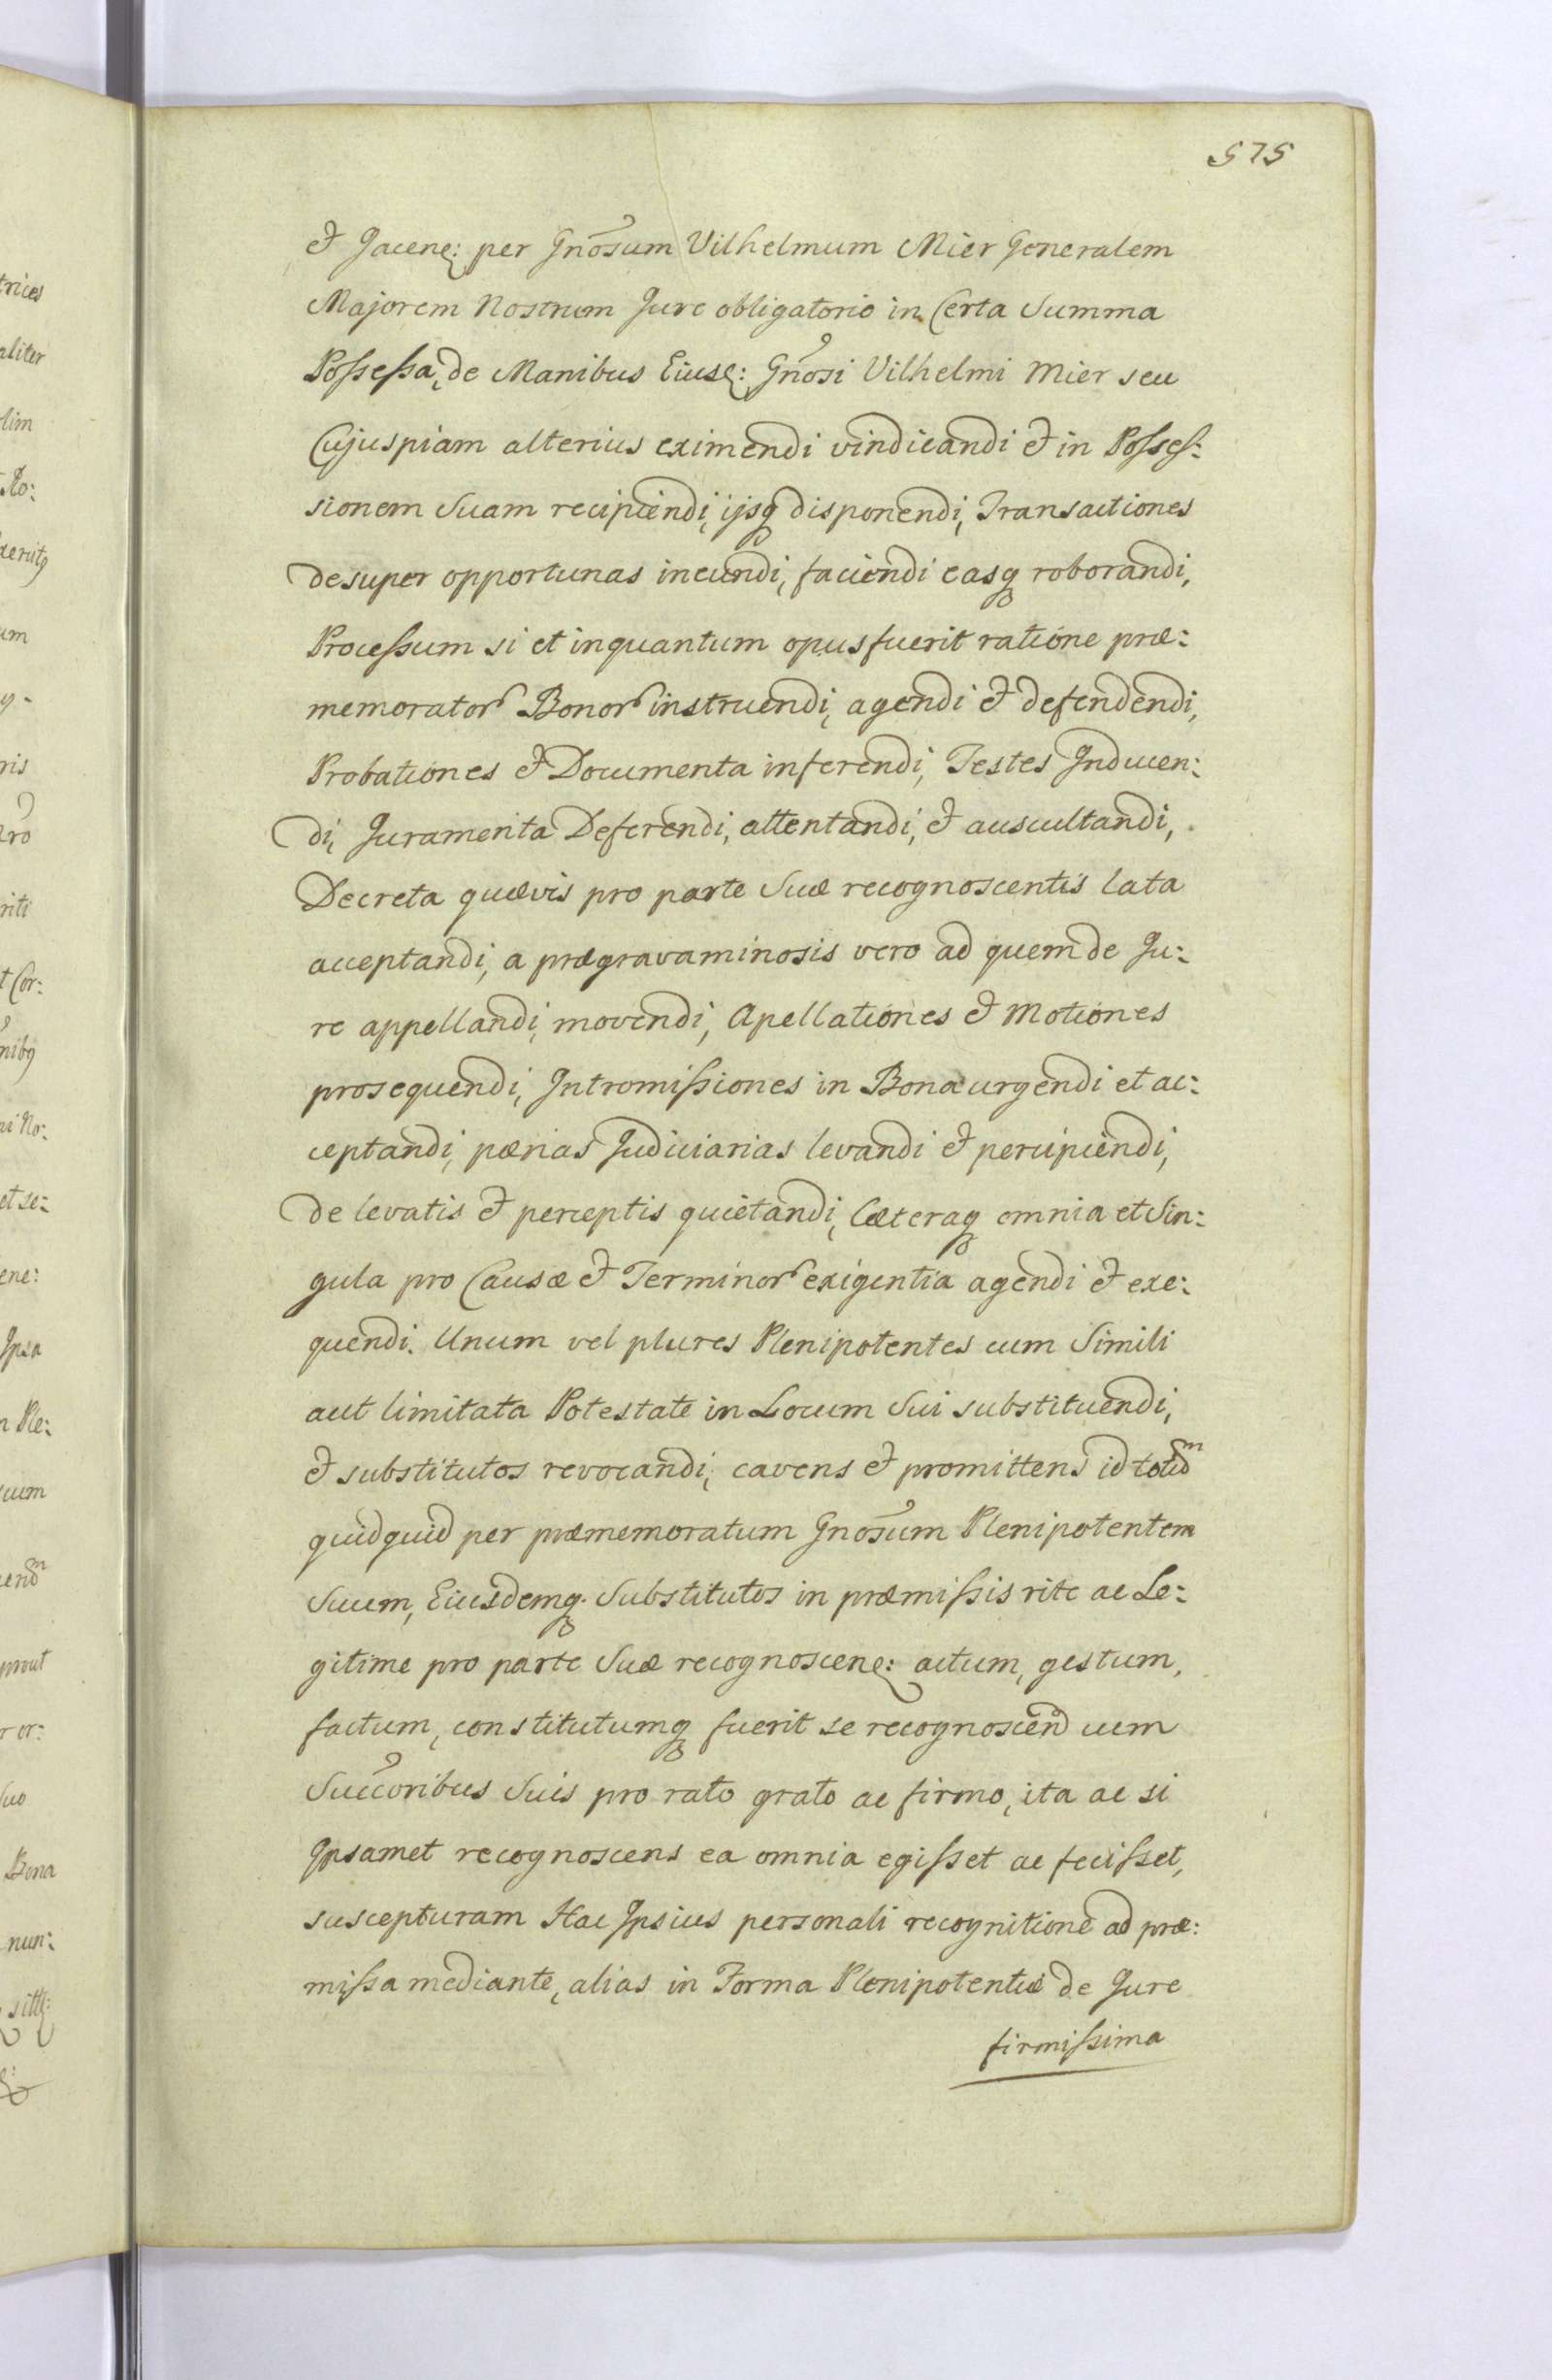 575
et Jacene: per Gnõsum Vilhelmum Mier Generalem
Majorem Nostrum Jure obligatorio in Certa Summa
Possessa, de Manibus Eiusd: Gnõsi Vilhelmi Mier seu
Cujuspiam alterius eximendi vindicandi et in Posses:
sionem Suam recipiendi, ijsq disponendi, Transactiones
desuper opportunas ineundi, faciendi easq roborandi,
Processum si et inquantum opus fuerit ratione præ:
memorator Bonor instruendi, agendi et defendendi,
Probationes et Documenta inferendi, Testes Inducen:
di, Juramenta Deferendi, attentandi, et auscultandi,
Decreta quævis pro parte Suæ recognoscentis lata
acceptandi, a prægravaminosis vero ad quem de Ju:
re appellandi, movendi, Apellationes et Motiones
prosequendi, Intromissiones in Bona urgendi et ac:
ceptandi, pænas Judiciarias levandi et percipiendi,
de levatis et perceptis quietandi, Cæteraq omnia et Sin:
gula pro Causæ et Terminor exigentia agendi et exe:
quendi. Unum vel plures Plenipotentes cum Simili
aut limitata Potestate in Locum Sui substituendi,
et substitutos revocandi, cavens et promittens id totũm
quidquid per præmemoratum Gnõsum Plenipotentem
Suum, Eiusdemq. Substitutos in præmissis rite ac Le:
gitime pro parte Suæ recognoscene: actum, gestum,
factum, constitutumq fuerit se recognoscend cum
Succoribus Suis pro rato grato ac firmo, ita ac si
Ipsamet recognoscens ea omnia egisset ac fecisset,
suscepturam Hac Ipsius personali recognitione ad præ:
missa mediante, alias in Forma Plenipotentiæ de Jure
firmissima